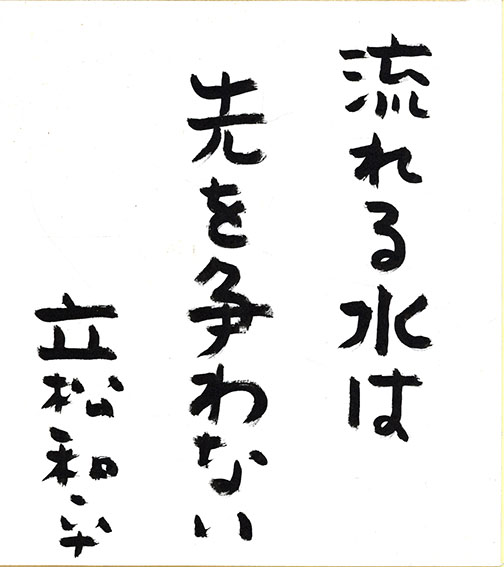 流れる水は
先を争わない
立松和平